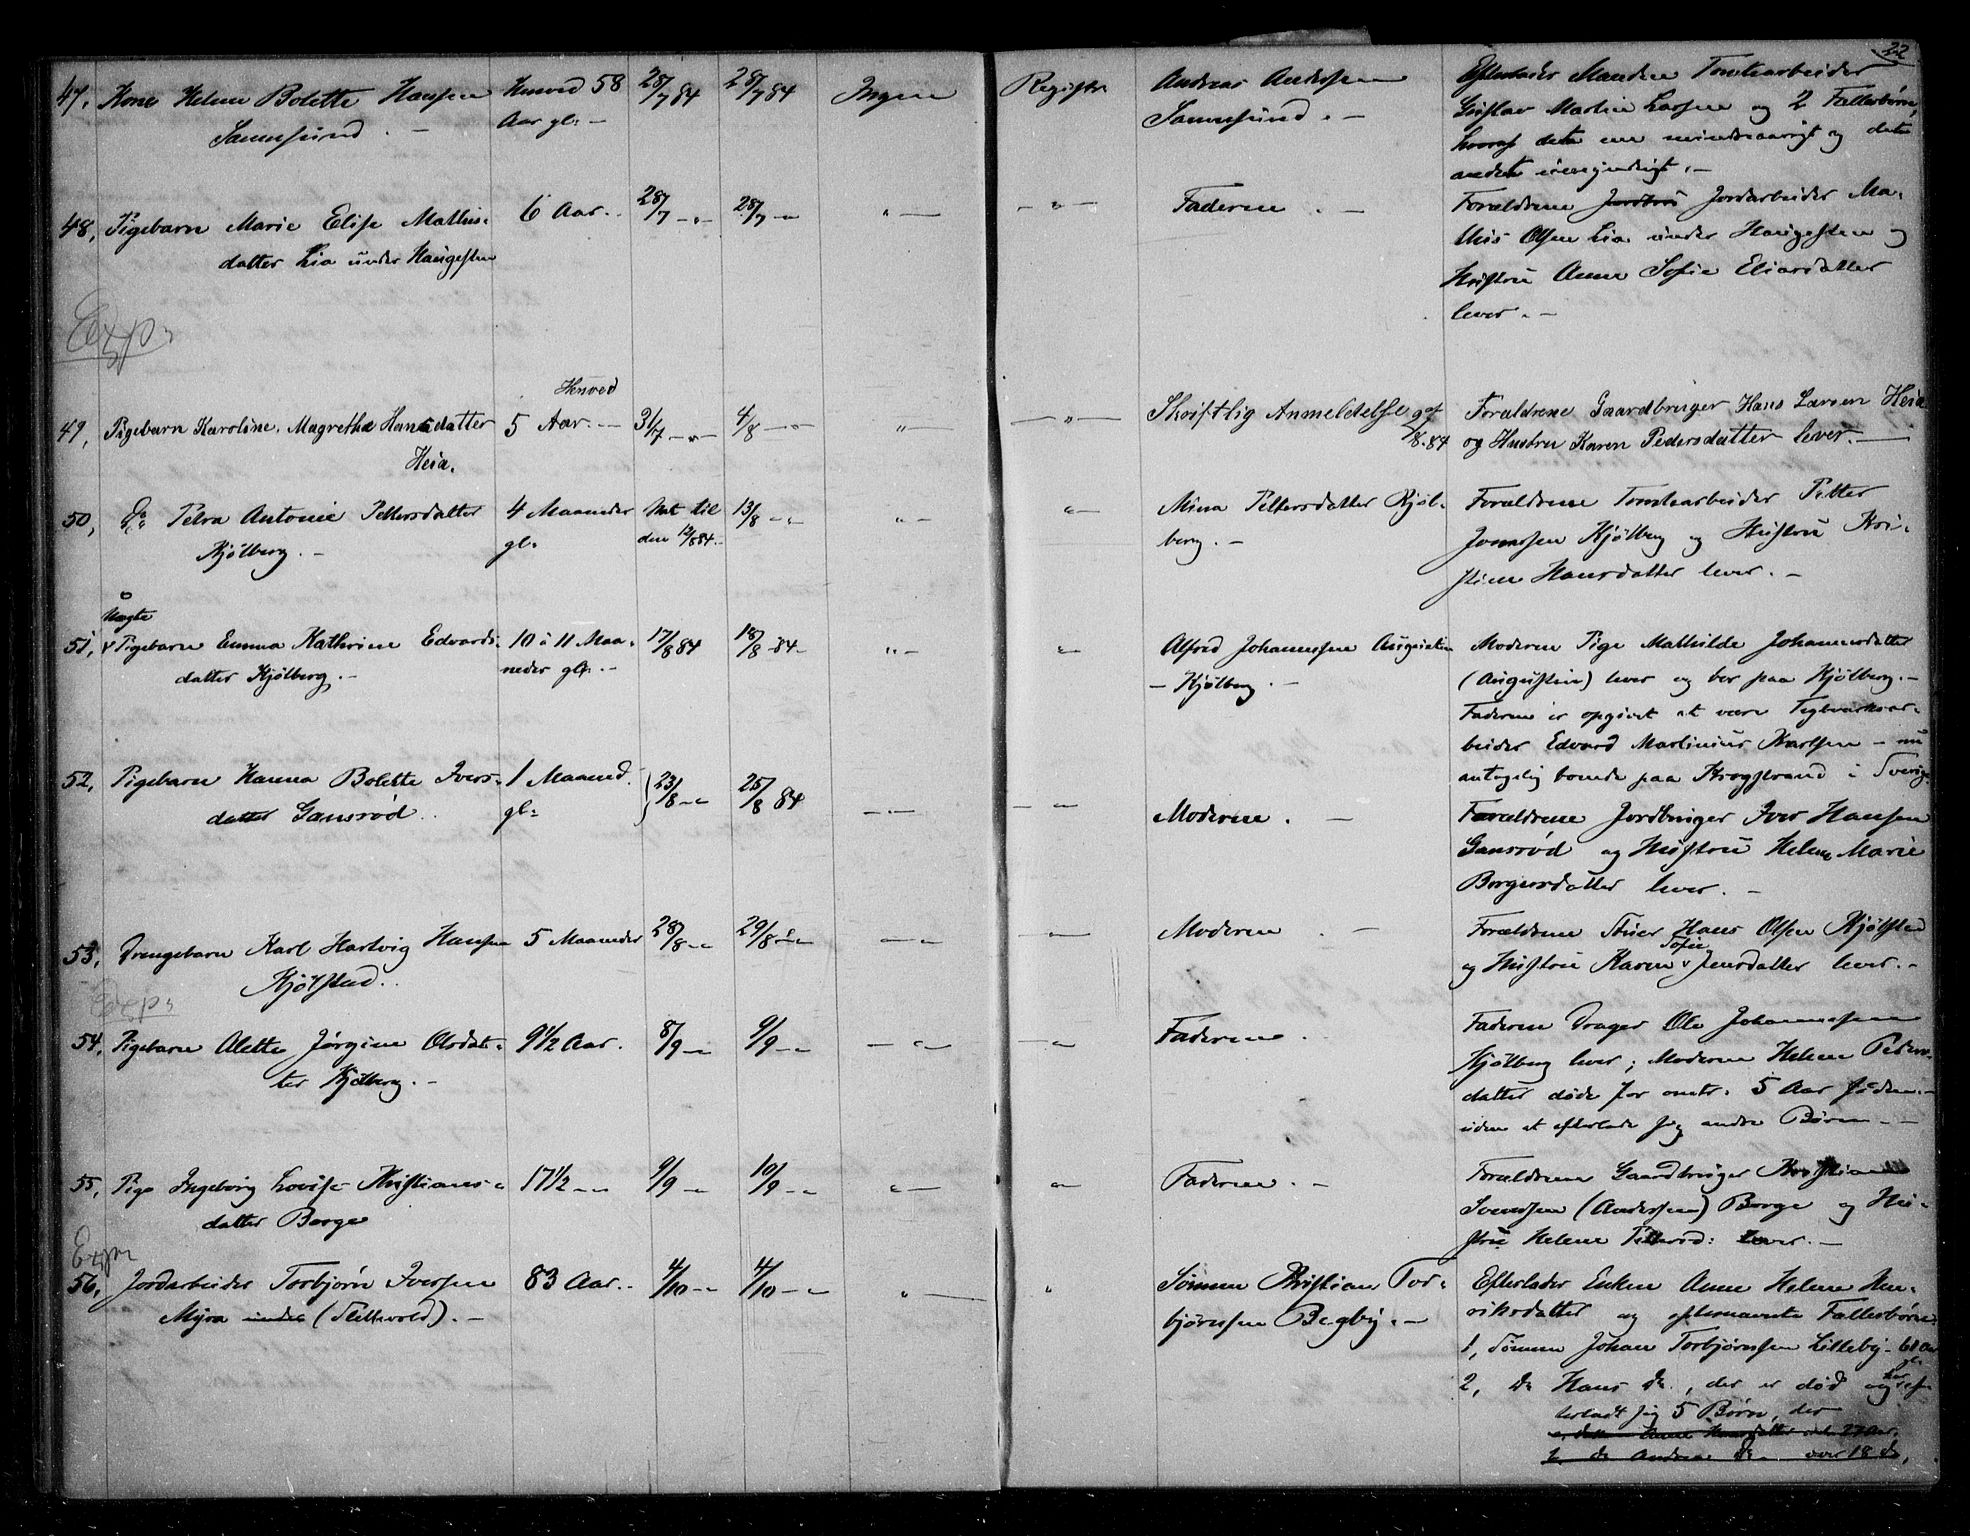 22
47, Kone Helene Bolette Hansen
Sannesund. –
Henved 58
Aar gl: –
28/7 84
28/7 84
Ingen
Registr.
Andreas Andersen
Sannesund. –
Efterlader Manden Tomtearbeider
Gustav Martin Larsen og 2 Fællesbørn,
hvoraf det ene mindreaarigt og det
andet umyndigt. –
48, Pigebarn Marie Elise Mathis-
datter Lia under Haugesten
6 Aar. –
28/7 – " –
28/7 – "
" –
– " –
Faderen . –
Forældrene Jordbru Jordarbeider Ma-
this Olsen Lia under Haugesten og
Hustru Anne Sofie Eliasdatter
lever. –
Exp.
49, Pigebarn Karoline Magrethe Hansdatter
Heia.
Henved
5 Aar. –
31/7 – " –
4/8 – "
" –
– " –
Skriftlig Anmeldelse af
/8-84
Forældrene Gaardbruger Hans Larsen Heia
og Hustru Karen Pedersdatter lever. –
50, Do Petra Antonie Pettersdatter
Kjølberg. –
4 Maaneder
gl:
Nat til
den 12/8 84. –
13/8 – " –
" –
" –
Mina Pettersdatter Kjøl-
berg. –
Forældrene Tomtearbeider Petter
Jonassen Kjølberg og Hustru Kri-
stine Hansdatter lever. –
Uægte
51, v Pigebarn Emma Kathrine Edvards-
datter Kjølberg. –
10 à 11 Maa-
neder gl. –
17/8 84
18/8 -84 –
" –
" –
Alfred Johannesen Augustin
– Kjølberg. –
Moderen Pige Mathilde Johannesdatter
(Augustin) lever og bor paa Kjølberg. –
Faderen er opgivet at være Teglværksar-
beider Edvard Martinius Karlsen – nu
antagelig boende paa Krogstrand i Sverige
52, Pigebarn Hanna Bolette Ivers-
datter Gansrød .
1 Maaned
gl:
23/8 – "
25/8 84
– " –
– "
Moderen . –
Forældrene Jordbruger Iver Hansen
Gansrød og Hustru Helene Marie
Borgersdatter lever. –
53, Drengebarn Karl Hartvig Hansen
Kjølstad.
5 Maaneder
28/8 – "
29/8 – "
– "
– "
Moderen . –
Forældrene Hans Olsen Kjølstad
Sofie
og Hustru Karen v Jensdatter lever. –
Exp.
54, Pigebarn Alette Jørgine Olsdat-
ter Kjølberg. –
9 1/2 Aar.
8/9 – "
9/9 – "
– " –
– "
Faderen .
Faderen Drager Ole Johannesen
Kjølberg lever; Moderen Helene Peders-
datter døde for omtr. 5 Aar siden –
uden at efterlade sig andre Børn. –
55, Pige Ingeborg Lovise Kristians-
datter Borge
17 1/2 – "
9/9 – "
10/9 – "
" –
"
Faderen. –
Forældrene Gaardbruger Kristian
Svendsen (Andersen) Borge og Hu-
stru Helene lever. –
Exp.
56, Jordarbeider Torbjørn Iversen
Myra under (Slettevold). –
83 Aar. –
4/10 – "
4/10 – "
" –
"
Sønnen Kristian Tor-
bjørnsen Begby. –
Efterlader Enken Anne Helene Hen-
riksdatter og efternævnte Fællesbørn:
1, Sønnen Johan Torbjørnsen Lilleby – 61 Aar
gl.
2, Do Hans Do, der er død og har ef-
terladt sig 5 Børn, der
a, datter Anne Hansdatter 27 Aar.
2, do Andrea Do over 18 Do,